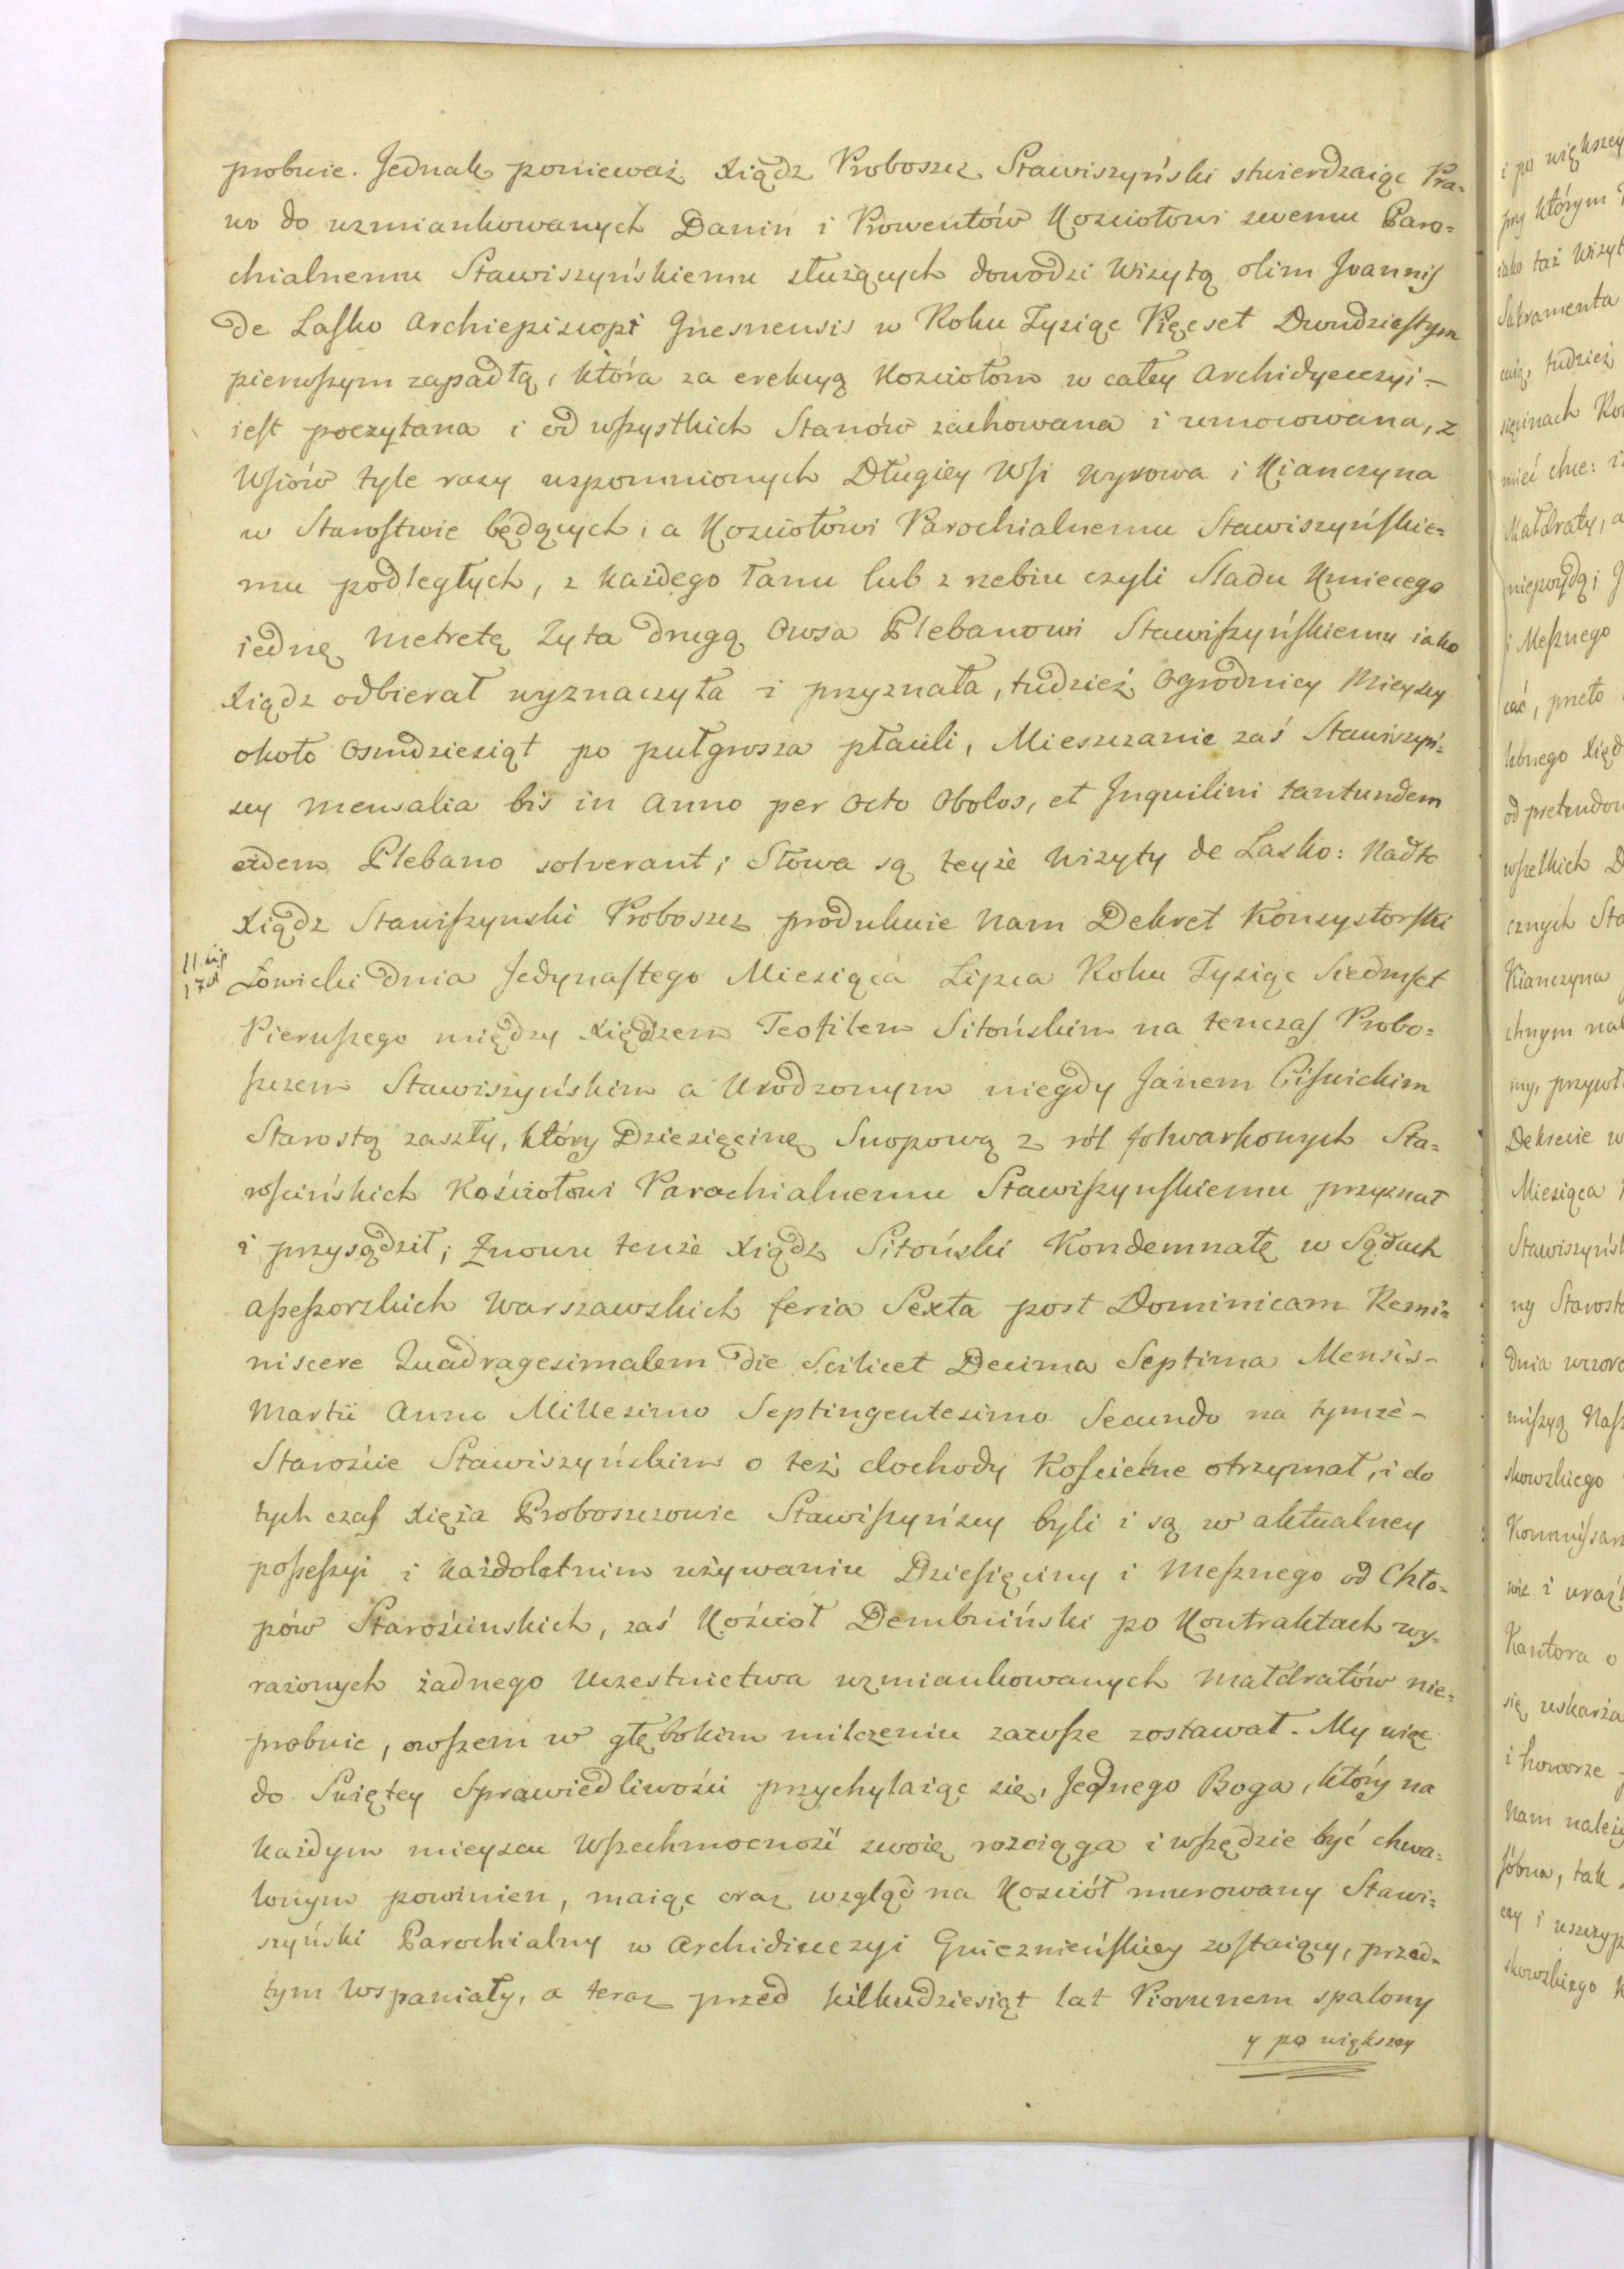 probuie. Jednak ponieważ Xiądz Proboszcz Stawiszyński stwierdzaiąc Pra=
wo do wzmiankowanych Danin i Prowentów Kosciołowi swemu Paro=
chialnemu Stawiszyńskiemu służących dowodzi Wizytą olim Joannis
de Lasko Archiepiscopi Gnesnensis w Roku Tysiąc Pięcset Dwudziestym
pierwszym zapadłą, która za erekcyą Kosciołow w całey Archidyecezyi -
iest poczytana i od wszystkich Stanów zachowana i umocowana, z
Wsiów tyle razy wspomnionych Długiey Wsi Wyrowa i Kianczyna
w Starostwie będących, a Kosciołowi Parochialnemu Stawiszyńskie=
mu podległych, z każdego łanu lub z rzebiu czyli Sladu Kmiecego
iednę Metretę Zyta drugą Owsa Plebanowi Stawiszyńskiemu iako
Xiądz odbierał wyznaczyła i przyznała, tudzież Ogrodnicy Mieyscy
około Osmdziesiąt po pułgrosza płacili, Mieszczanie zaś Stawiszyń=
scy Mensalia bis in Anno per Octo Obolos, et Inquilini tantundem
eidem Plebano solverant; Słowa są teyże Wizyty de Lasko: Nadto
Xiądz Stawiszynski Proboszcz produkuie Nam Dekret Konsystorski
11. Lip
1701
Łowicki Dnia Jedynastego Miesiąca Lipca Roku Tysiąc Siedmset
Pierwszego między Xiędzem Teofilem Sitońskim na tenczas Probo=
szczem Stawiszyńskim a Urodzonym niegdy Janem Cisnickim
Starostą zaszły, który Dziesięcinę Snopową z ról folwarkowych Sta=
rościńskich Kościołowi Parochialnemu Stawiszynskiemu przyznał
i przysądził; Znowu tenże Xiądz Sitoński Kondemnatę w Sądach
Assessorskich Warszawskich feria Sexta post Dominicam Remi=
niscere Quadragesimalem die Scilicet Decima Septima Mensis -
Martii Anno Millesimo Septingentesimo Secundo na tymże -
Staroście Stawiszyńskim o też dochody Koscielne otrzymał, i do
tych czas Xięża Proboszczowie Stawiszyńscy byli i są w aktualney
possessyi i każdoletnim używaniu Dziesięciny i Mesznego od Chło=
pów Starościnskich, zaś Kościół Dembniński po Kontraktach wy=
rażonych żadnego Uczestnictwa wzmiankowanych Małdratów nie=
probuie, owszem w głębokim milczeniu zawsze zostawał. My więc
do Swiętey Sprawiedliwości przychylaiąc się, Jednego Boga, który na
każdym mieyscu Wszechmocność swoię rozciąga i wszędzie być chwa=
lonym powinien, maiąc oraz wzgląd na Kosciół murowany Stawi=
szyński Parochialny w Archidiecezyi Gnieznieńskiey zostaiący, przed=
tym Wspaniały, a teraz przed kilkudziesiąt lat Piorunem spalony
y po większey
i po większey
przy którym
iako taż Wizyt
Sakramenta
tudzież
mieć chce:
Małdraty, a
niepoydą;
i Mesznego
od pretendow
wszelkich D
cznych Sta
Kianczyna
chnym nal
Dekrecie w
Miesiąca
Stawiszyńsk
ny Starosta
dnia wczora
skowskiego
Kommissar
Kantora o
się uskarża
i honorze
Nam należy
tak
skowskiego K